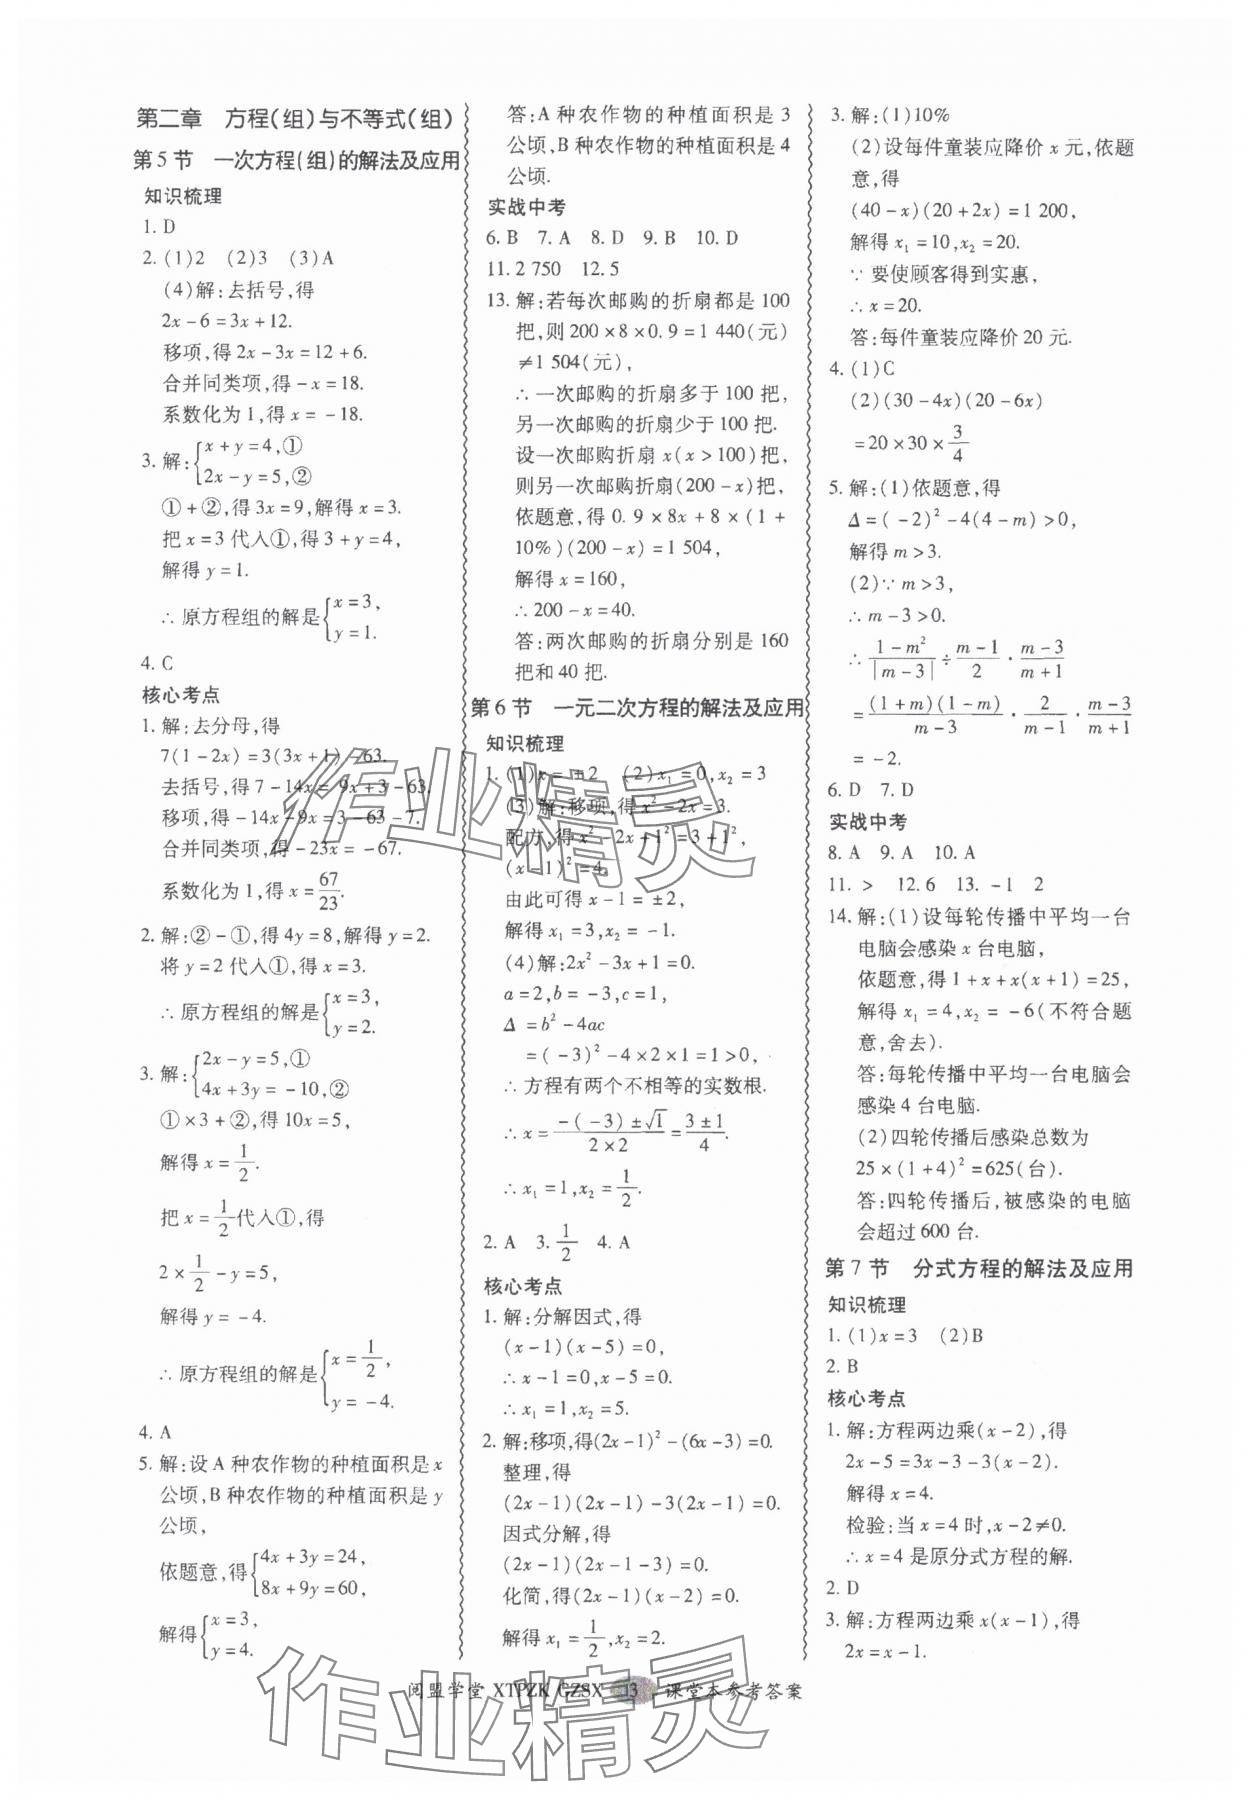 第二章 方程(组)与不等式(组)
第5节 一次方程(组)的解法及应用
知识梳理
1. D
2. (1)2 (2)3 (3)A
(4)解:去括号,得
2x-6=3x+12.
移项,得2x-3x=12+6.
合并同类项,得-x=18.
系数化为1,得x=-18.
3. 解:{x+y=4,①
2x-y=5,②
①+②,得3x=9,解得x=3.
把x=3代入①,得3+y=4,
解得y=1.
∴原方程组的解是{x=3,
y=1.
4. C
核心考点
1. 解:去分母,得
7(1-2x)=3(3x+1)-63.
去括号,得7-14x=9x+3-63.
移项,得-14x-9x=3-63-7.
合并同类项,得-23x=-67.
系数化为1,得x=67/23.
2. 解:②-①,得4y=8,解得y=2.
将y=2代入①,得x=3.
∴原方程组的解是{x=3,
y=2.
3. 解:{2x-y=5,①
4x+3y=-10,②
①×3+②,得10x=5,
解得x=1/2.
把x=1/2代入①,得
2×1/2-y=5,
解得y=-4.
∴原方程组的解是{x=1/2,
y=-4.
4. A
5. 解:设A种农作物的种植面积是x
公顷,B种农作物的种植面积是y
公顷,
依题意,得{4x+3y=24,
8x+9y=60,
解得{x=3,
y=4.
答:A种农作物的种植面积是3
公顷,B种农作物的种植面积是4
公顷.
实战中考
6. B 7. A 8. D 9. B 10. D
11. 2 750 12. 5
13. 解:若每次邮购的折扇都是100
把,则200×8×0.9=1 440(元)
≠1 504(元),
∴一次邮购的折扇多于100把,
另一次邮购的折扇少于100把.
设一次邮购折扇x(x>100)把,
则另一次邮购折扇(200-x)把,
依题意,得0.9×8x+8×(1+
10%)(200-x)=1 504,
解得x=160,
∴200-x=40.
答:两次邮购的折扇分别是160
把和40把.
第6节 一元二次方程的解法及应用
知识梳理
1. (1)x=±2 (2)x₁=0,x₂=3
(3)解:移项,得x²-2x=3.
配方,得x²-2x+1²=3+1²,
(x-1)²=4.
由此可得x-1=±2,
解得x₁=3,x₂=-1.
(4)解:2x²-3x+1=0.
a=2,b=-3,c=1,
Δ=b²-4ac
=(-3)²-4×2×1=1>0,
∴方程有两个不相等的实数根.
∴x=(-(-3)±√1)/(2×2)=(3±1)/4.
∴x₁=1,x₂=1/2.
2. A 3. 1/2 4. A
核心考点
1. 解:分解因式,得
(x-1)(x-5)=0.
∴x-1=0,x-5=0.
∴x₁=1,x₂=5.
2. 解:移项,得(2x-1)²-(6x-3)=0.
整理,得
(2x-1)(2x-1)-3(2x-1)=0.
因式分解,得
(2x-1)(2x-1-3)=0.
化简,得(2x-1)(x-2)=0.
解得x₁=1/2,x₂=2.
3. 解:(1)10%
(2)设每件童装应降价x元,依题
意,得
(40-x)(20+2x)=1 200,
解得x₁=10,x₂=20.
∵要使顾客得到实惠,
∴x=20.
答:每件童装应降价20元.
4. (1)C
(2)(30-4x)(20-6x)
=20×30×3/4
5. 解:(1)依题意,得
Δ=(-2)²-4(4-m)>0,
解得m>3.
(2)∵m>3,
∴m-3>0.
∴(1-m²)/|m-3|÷(m-1)/2·(m-3)/(m+1)
=(1+m)(1-m)/(m-3)·2/(m-1)·(m-3)/(m+1)
=-2.
6. D 7. D
实战中考
8. A 9. A 10. A
11. > 12. 6 13. -1 2
14. 解:(1)设每轮传播中平均一台
电脑会感染x台电脑,
依题意,得1+x+x(x+1)=25,
解得x₁=4,x₂=-6(不符合题
意,舍去).
答:每轮传播中平均一台电脑会
感染4台电脑.
(2)四轮传播后感染总数为
25×(1+4)²=625(台).
答:四轮传播后,被感染的电脑
会超过600台.
第7节 分式方程的解法及应用
知识梳理
1. (1)x=3 (2)B
2. B
核心考点
1. 解:方程两边乘(x-2),得
2x-5=3x-3-3(x-2).
解得x=4.
检验:当x=4时,x-2≠0.
∴x=4是原分式方程的解.
2. D
3. 解:方程两边乘x(x-1),得
2x=x-1.
阅盟学堂 XTPZK GZSX 13 课堂本参考答案
作业精灵
作业精灵